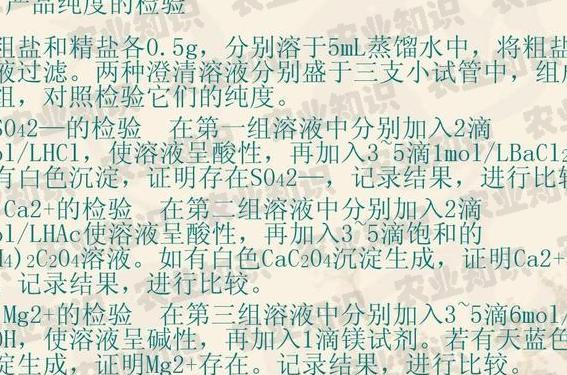 产品纯度的检验
粗盐和精盐各0.5g，分别溶于5mL蒸馏水中，将粗盐
液过滤。两种澄清溶液分别盛于三支小试管中，组成
组，对照检验它们的纯度。
SO42—的检验　在第一组溶液中分别加入2滴
ol/LHCl，使溶液呈酸性，再加入3~5滴1mol/LBaCl2
有白色沉淀，证明存在SO42—，记录结果，进行比较
Ca2+的检验　在第二组溶液中分别加入2滴
ol/LHAc使溶液呈酸性，再加入3~5滴饱和的
4)2C2O4溶液。如有白色CaC2O4沉淀生成，证明Ca2+
，记录结果，进行比较。
Mg2+的检验　在第三组溶液中分别加入3~5滴6mol/
OH，使溶液呈碱性，再加入1滴镁试剂。若有天蓝色
淀生成，证明Mg2+存在。记录结果，进行比较。